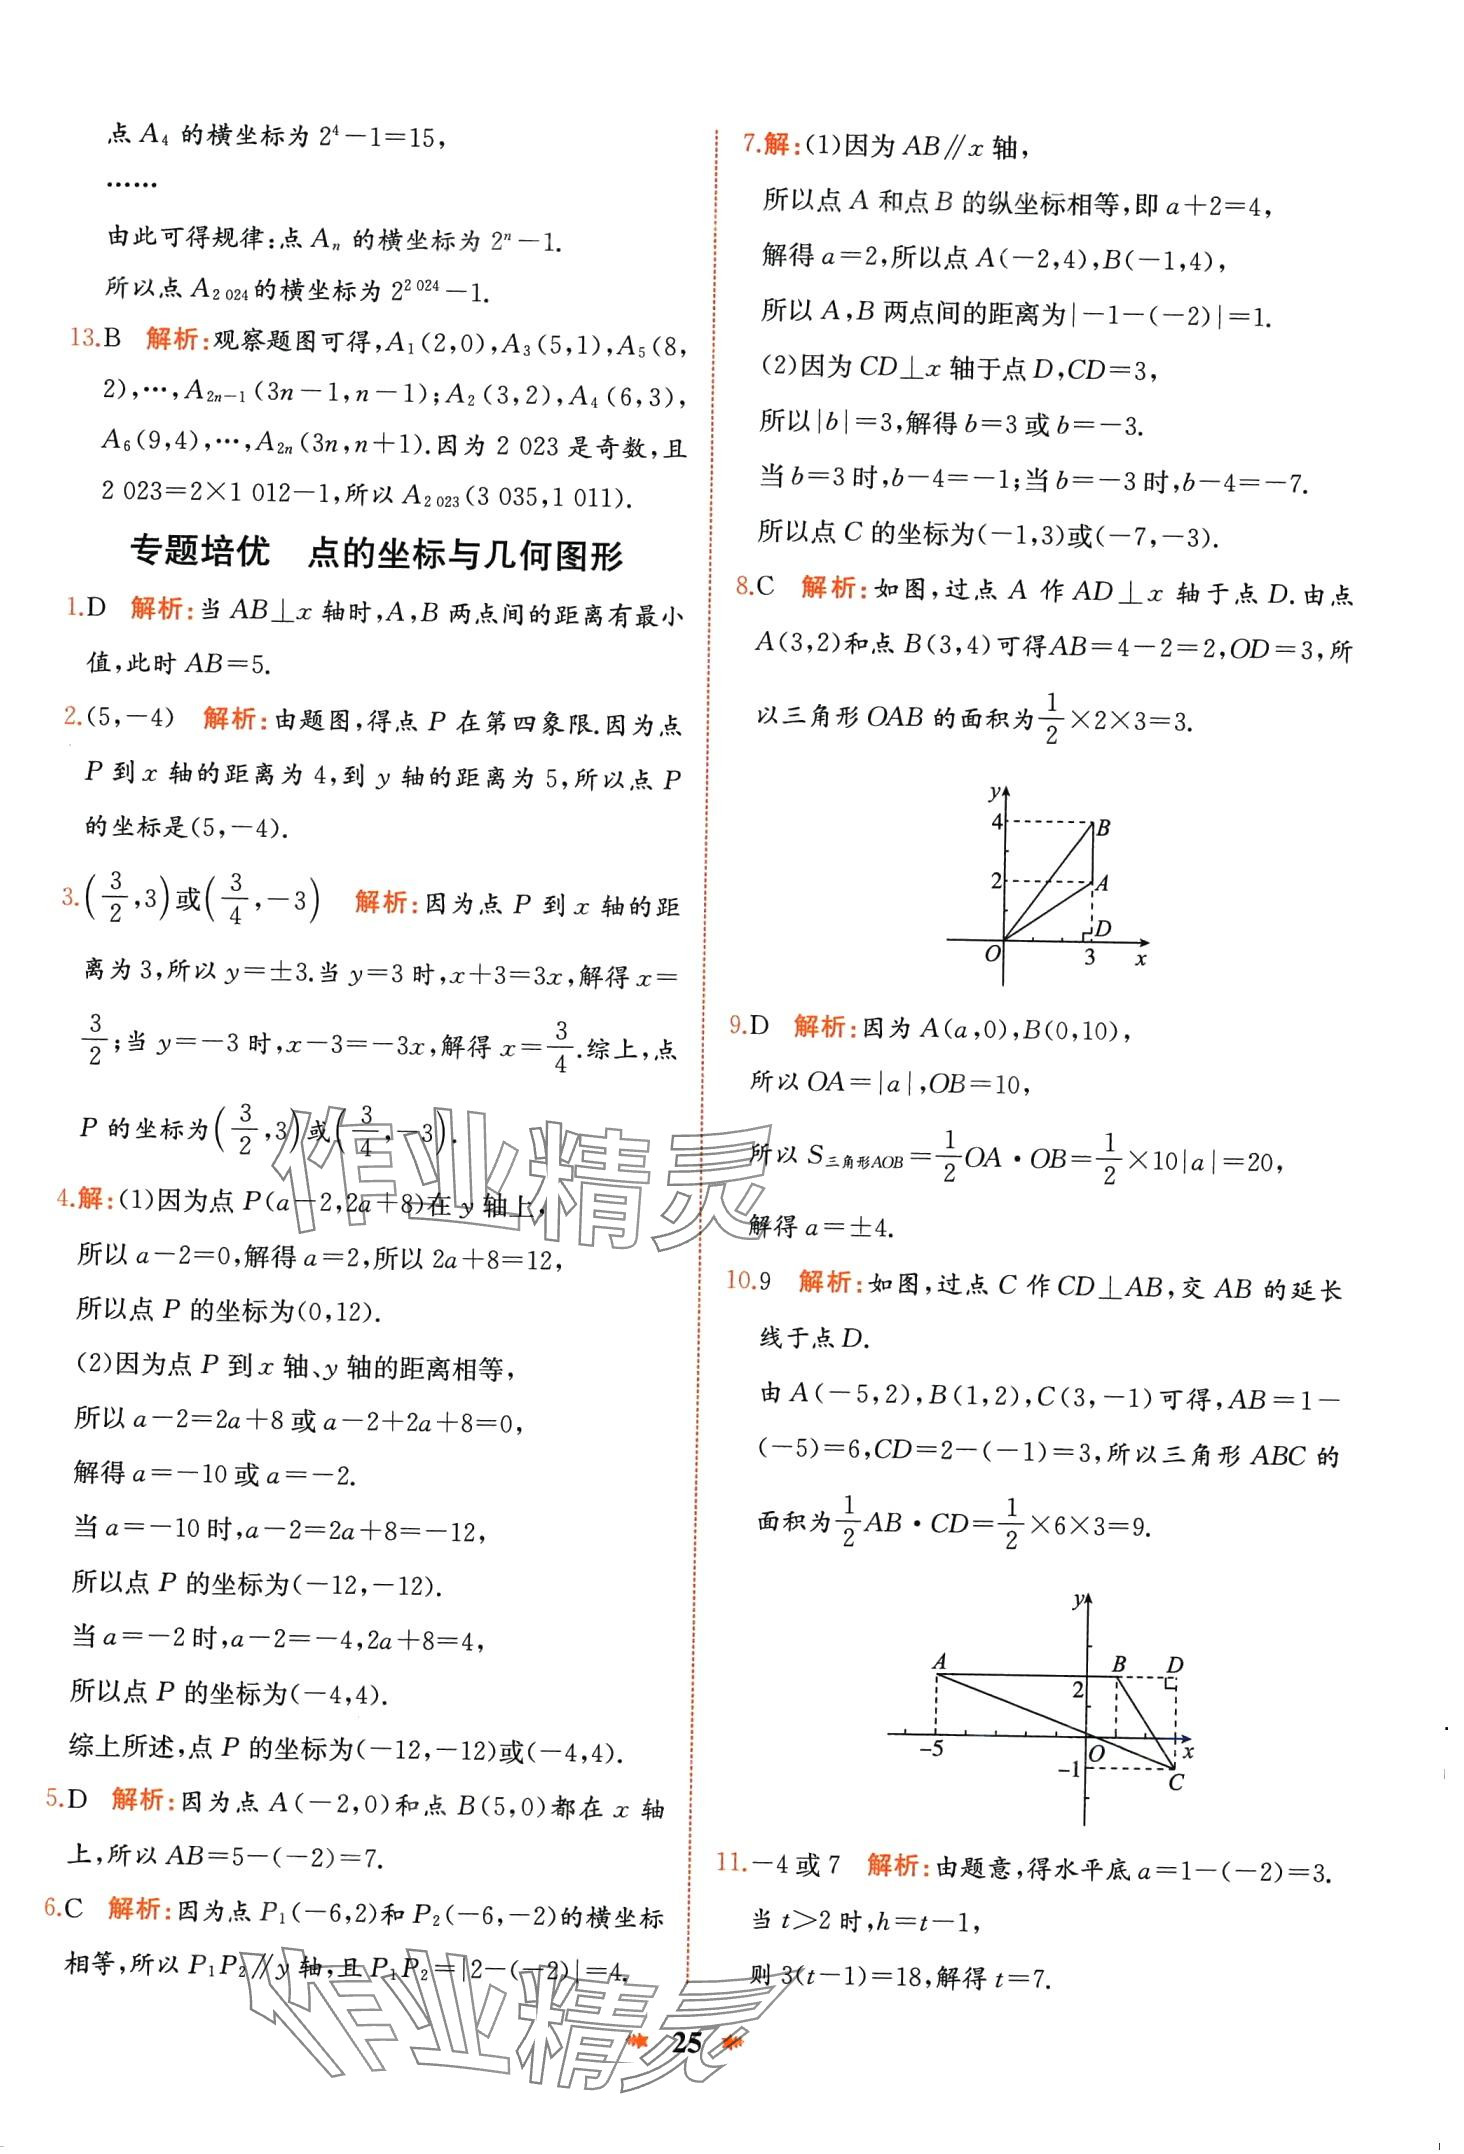 点 A₄ 的横坐标为 2⁴－1＝15，
……
由此可得规律：点 Aₙ 的横坐标为 2ⁿ－1.
所以点 A₂ ₀₂₄ 的横坐标为 2² ⁰²⁴－1.
13.B 解析：观察题图可得，A₁(2,0)，A₃(5,1)，A₅(8,
2)，…，A₂ₙ₋₁(3n－1,n－1)；A₂(3,2)，A₄(6,3)，
A₆(9,4)，…，A₂ₙ(3n,n＋1).因为 2 023 是奇数，且
2 023＝2×1 012－1，所以 A₂ ₀₂₃(3 035,1 011).
专题培优 点的坐标与几何图形
1.D 解析：当 AB⊥x 轴时，A，B 两点间的距离有最小
值，此时 AB＝5.
2.(5,－4) 解析：由题图，得点 P 在第四象限.因为点
P 到 x 轴的距离为 4，到 y 轴的距离为 5，所以点 P
的坐标是(5,－4).
3.(3/2,3)或(3/4,－3) 解析：因为点 P 到 x 轴的距
离为 3，所以 y＝±3.当 y＝3 时，x＋3＝3x，解得 x＝
3/2；当 y＝－3 时，x－3＝－3x，解得 x＝3/4.综上，点
P 的坐标为(3/2,3)或(3/4,－3).
4.解：(1)因为点 P(a－2,2a＋8)在 y 轴上，
所以 a－2＝0，解得 a＝2，所以 2a＋8＝12，
所以点 P 的坐标为(0,12).
(2)因为点 P 到 x 轴、y 轴的距离相等，
所以 a－2＝2a＋8 或 a－2＋2a＋8＝0，
解得 a＝－10 或 a＝－2.
当 a＝－10 时，a－2＝2a＋8＝－12，
所以点 P 的坐标为(－12,－12).
当 a＝－2 时，a－2＝－4，2a＋8＝4，
所以点 P 的坐标为(－4,4).
综上所述，点 P 的坐标为(－12,－12)或(－4,4).
5.D 解析：因为点 A(－2,0)和点 B(5,0)都在 x 轴
上，所以 AB＝5－(－2)＝7.
6.C 解析：因为点 P₁(－6,2)和 P₂(－6,－2)的横坐标
相等，所以 P₁P₂∥y 轴，且 P₁P₂＝|2－(－2)|＝4.
7.解：(1)因为 AB∥x 轴，
所以点 A 和点 B 的纵坐标相等，即 a＋2＝4，
解得 a＝2，所以点 A(－2,4)，B(－1,4)，
所以 A，B 两点间的距离为|－1－(－2)|＝1.
(2)因为 CD⊥x 轴于点 D，CD＝3，
所以|b|＝3，解得 b＝3 或 b＝－3.
当 b＝3 时，b－4＝－1；当 b＝－3 时，b－4＝－7.
所以点 C 的坐标为(－1,3)或(－7,－3).
8.C 解析：如图，过点 A 作 AD⊥x 轴于点 D.由点
A(3,2)和点 B(3,4)可得AB＝4－2＝2，OD＝3，所
以三角形 OAB 的面积为1/2×2×3＝3.
y
4
B
2
A
D
O
3
x
9.D 解析：因为 A(a,0)，B(0,10)，
所以 OA＝|a|，OB＝10，
所以 S三角形AOB＝1/2OA·OB＝1/2×10|a|＝20，
解得 a＝±4.
10.9 解析：如图，过点 C 作 CD⊥AB，交 AB 的延长
线于点 D.
由 A(－5,2)，B(1,2)，C(3,－1)可得，AB＝1－
(－5)＝6，CD＝2－(－1)＝3，所以三角形 ABC 的
面积为1/2AB·CD＝1/2×6×3＝9.
y
A
B
D
2
－5
O
x
－1
C
11.－4 或 7 解析：由题意，得水平底 a＝1－(－2)＝3.
当 t＞2 时，h＝t－1，
则 3(t－1)＝18，解得 t＝7.
作业精灵
作业精灵
25